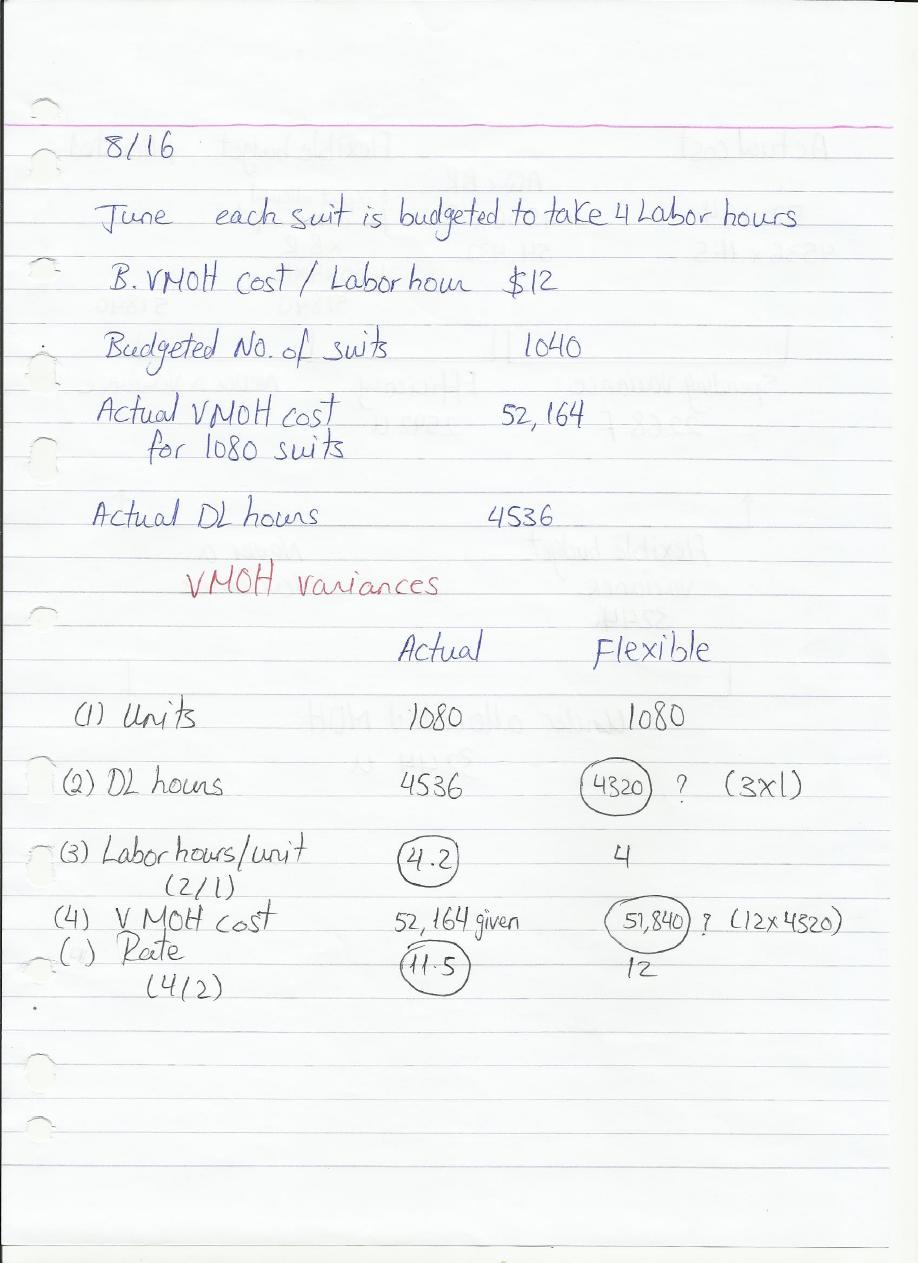 8/16
June each suit is budgeted to take 4 Labor hours
B. VMOH cost / Labor hour $12
Budgeted No. of suits 1040
Actual VMOH cost 52,164
for 1080 suits
Actual DL hours 4536
VMOH variances
Actual Flexible
(1) Units 1080 1080
(2) DL hours 4536 4320 ? (3x1)
(3) Labor hours/unit 4.2 4
(2/1)
(4) V MOH cost 52,164 given 51,840 ? (12x4320)
(.) Rate 11.5 12
(4/2)